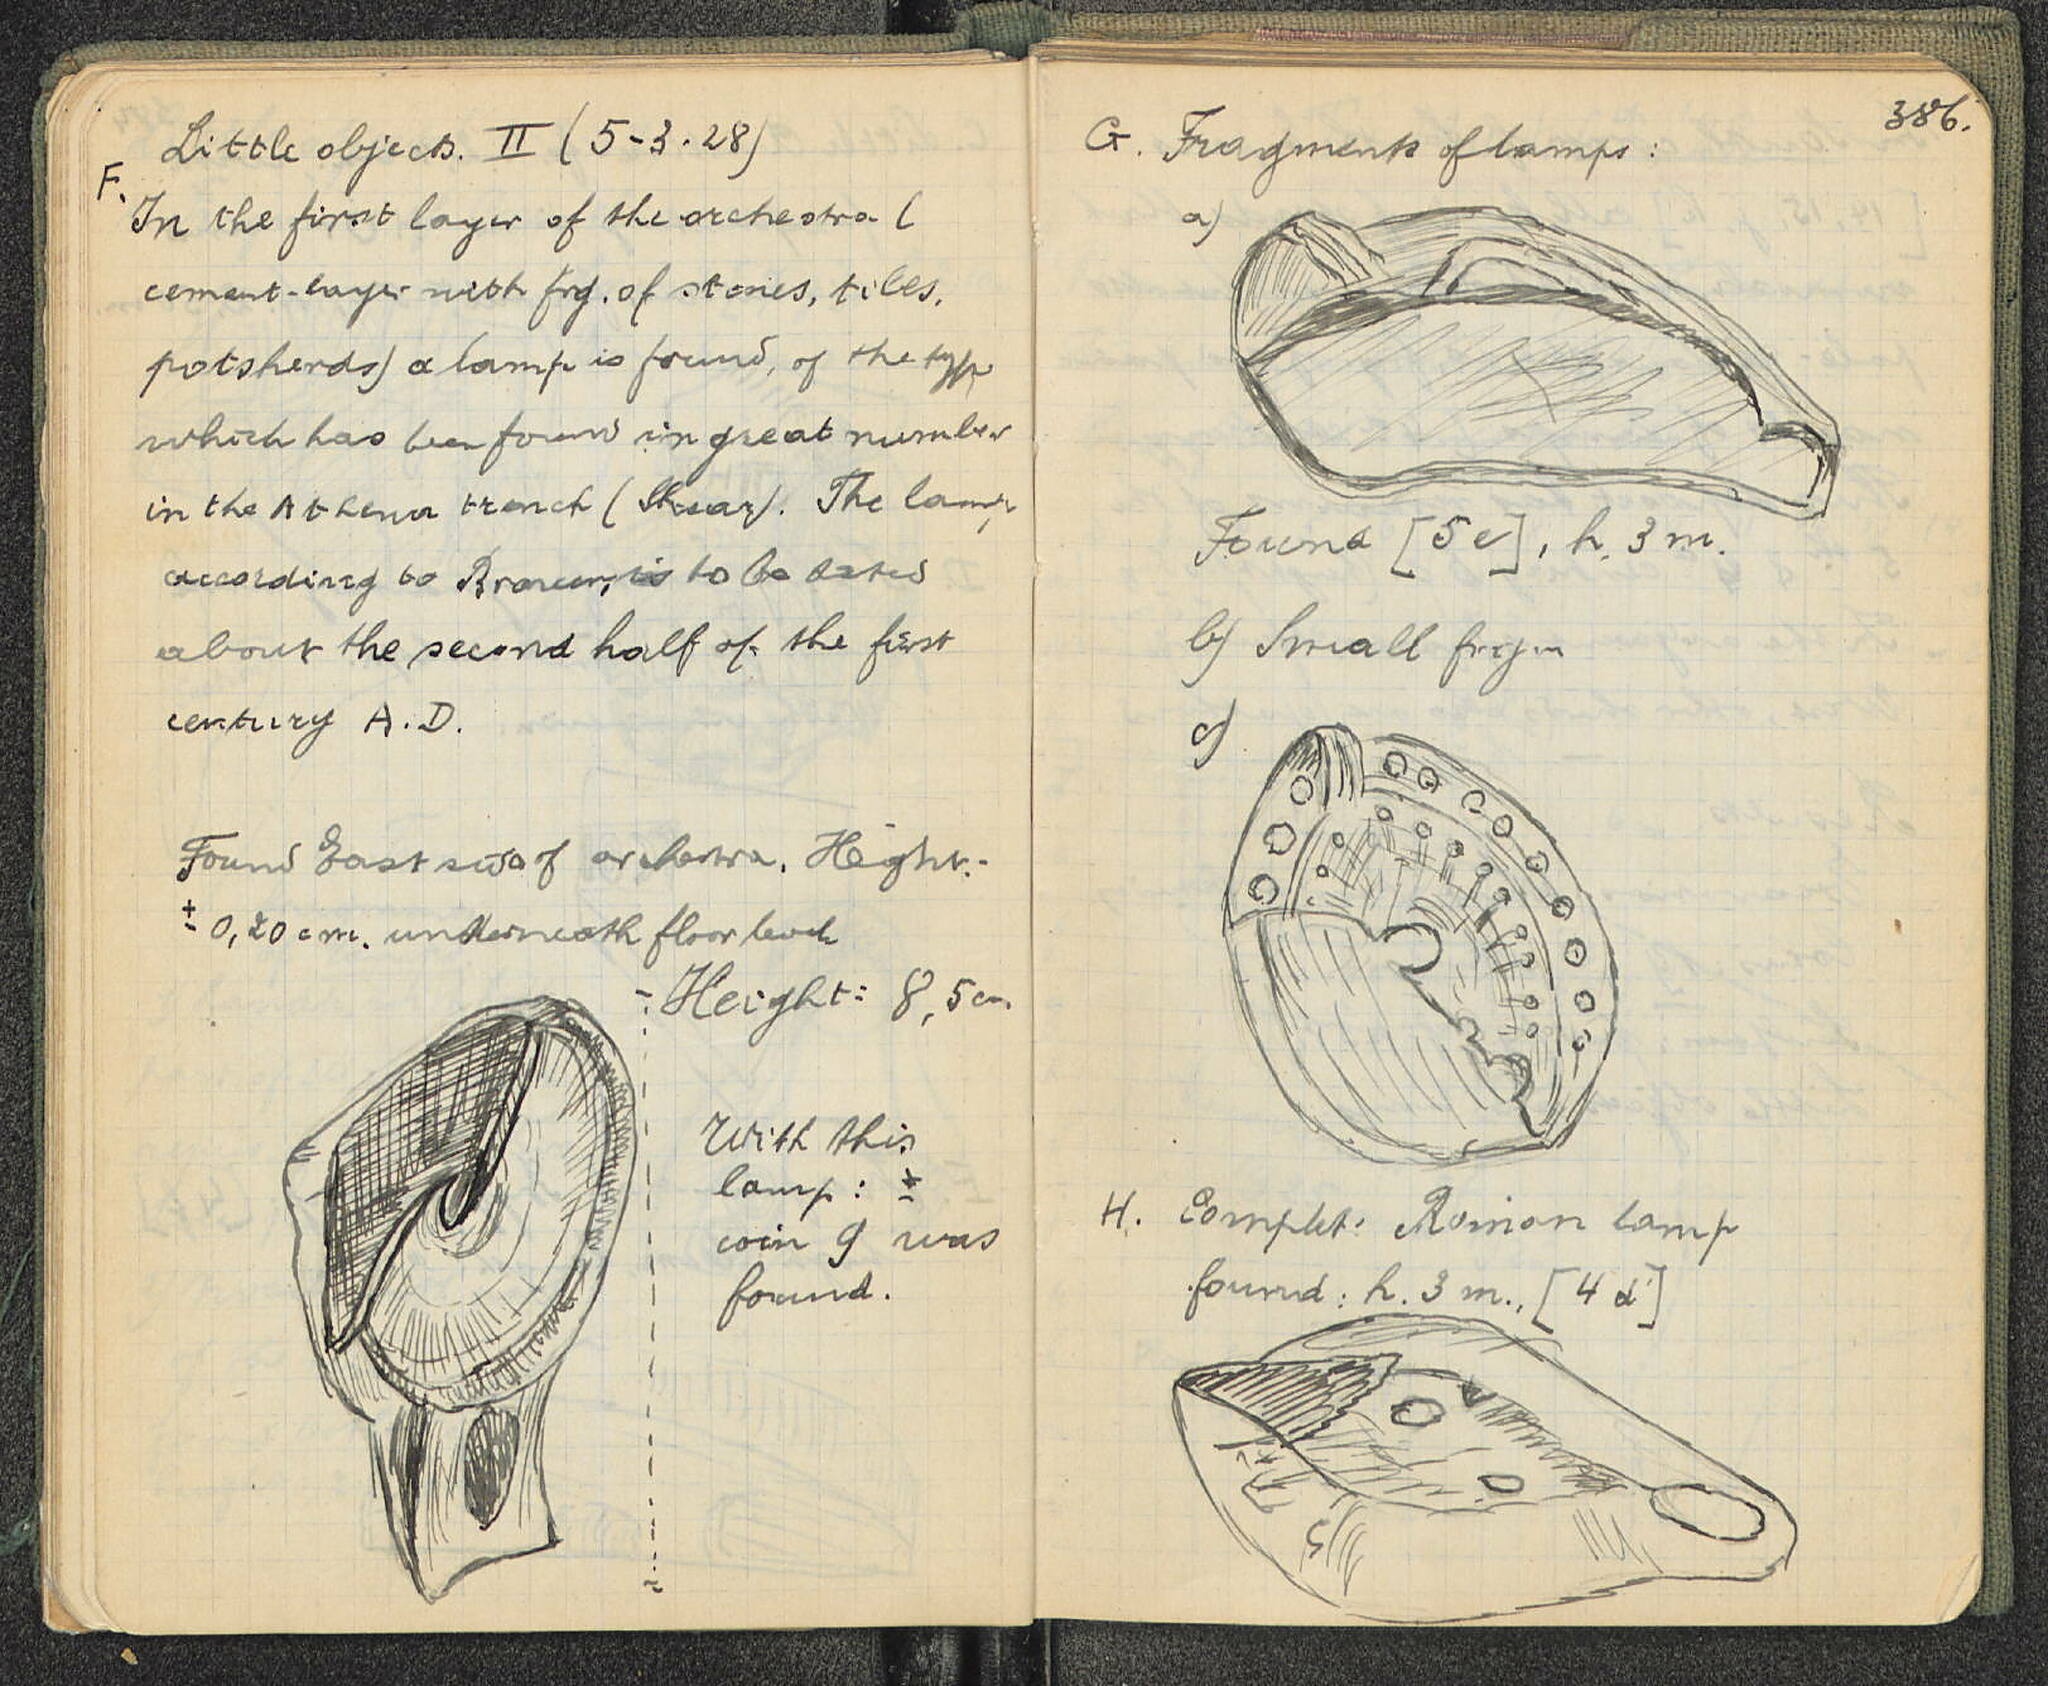 Little objects. II (5-3.28)
F.
In the first layer of the orchestra (
cement-layer with frg. of stones, tiles,
potsherds) a lamp is found, of the type
which has been found in great number
in the Athena trench (Shear). The lamp,
according to Broneer, is to be dated
about the second half of the first
century A.D.
Found East side of orchestra. Height:
± 0,20 cm. underneath floor level
Height: 8,5 cm
With this
lamp: ±
coin 9 was
found.
386.
G. Fragments of lamps:
a)
Found [5e], h. 3 m.
b) Small fragm
c)
H. Complete Roman lamp
found: h. 3 m., [4 d]